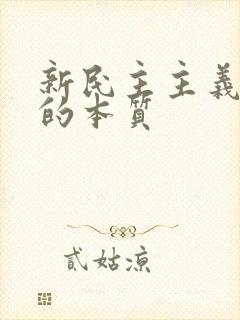 新民主主義
的本質
貳姑凉